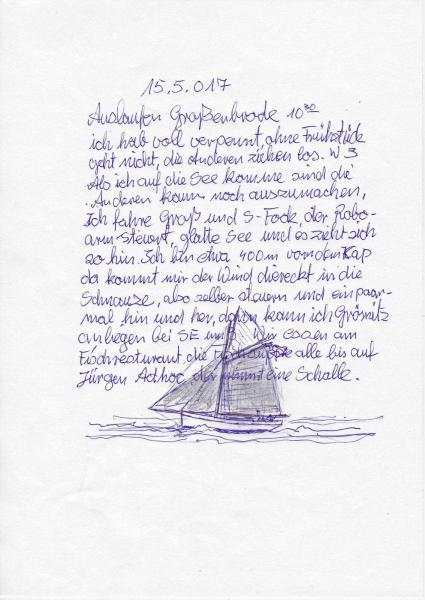 15.5.017
Auslaufen Großenbrode 10³⁰
ich hab voll verpennt, ohne Frühstück
geht nicht, die anderen ziehen los. W 3
Als ich auf die See komme sind die
Anderen kaum noch auszumachen,
Ich fahre Groß und S-Fock, der Robo-
arm steuert, glatte See und es zieht sich
so hin. Ich bin etwa 400m von dem Kap
da kommt mir der Wind diereckt in die
Schnauze, also selber steuern und ein paar-
mal hin und her, dann kann ich Grömitz
anliegen bei SE Wir essen am
Fischresturant, die alle bis auf
Jürgen Adhoc der nimmt eine Scholle.